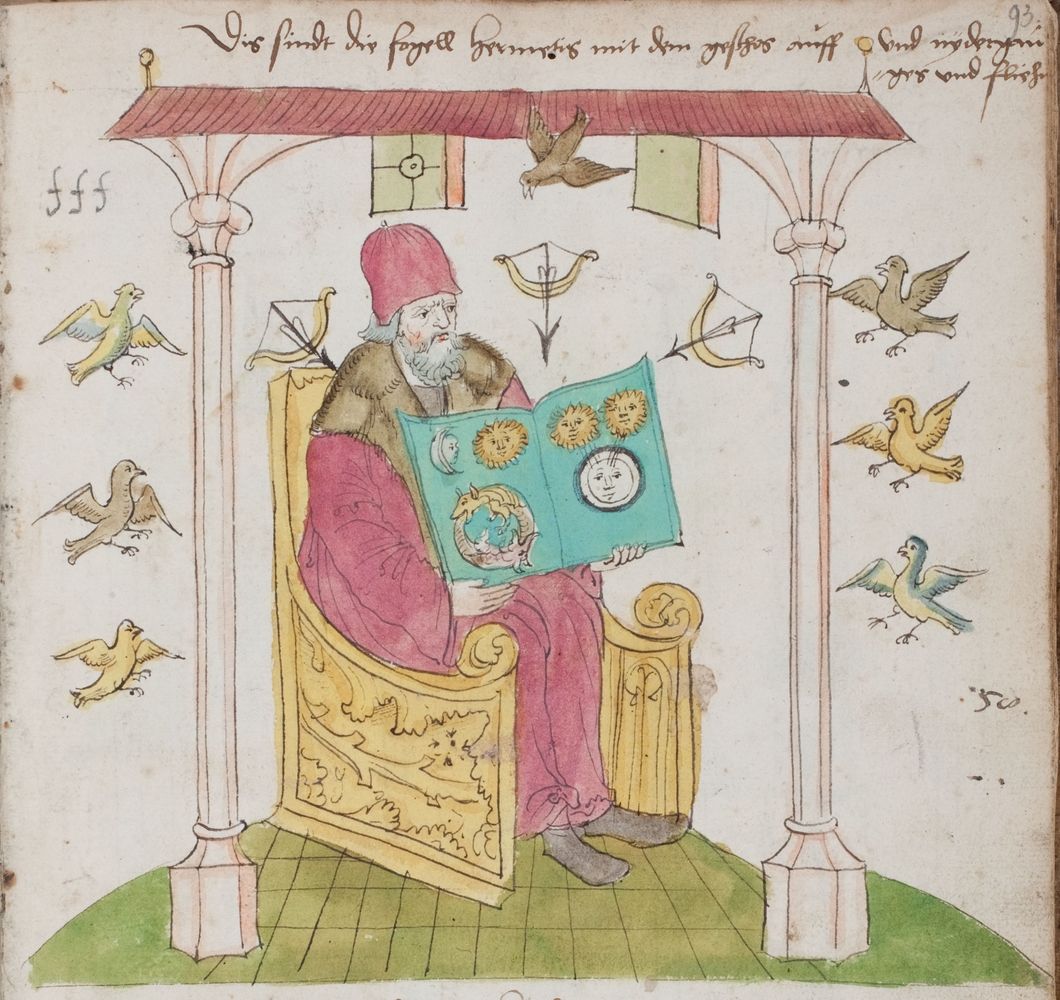 93.
Dis sindt die fogell hermetis mit dem geschos auff und nyderstei
ges und flieh
fff
50.